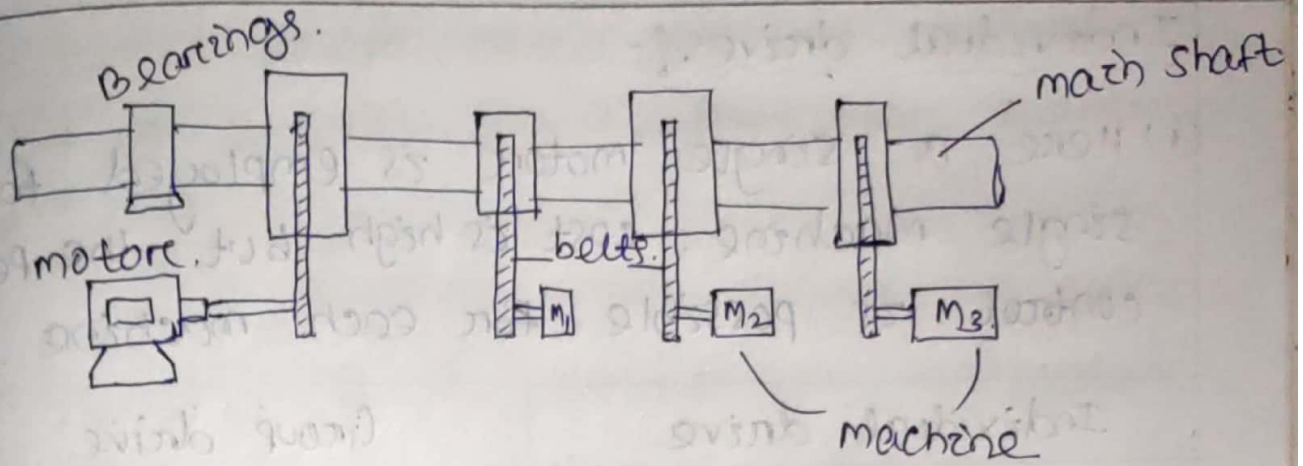 Bearings.
main shaft
motore.
belts.
M1
M2
M3.
machine